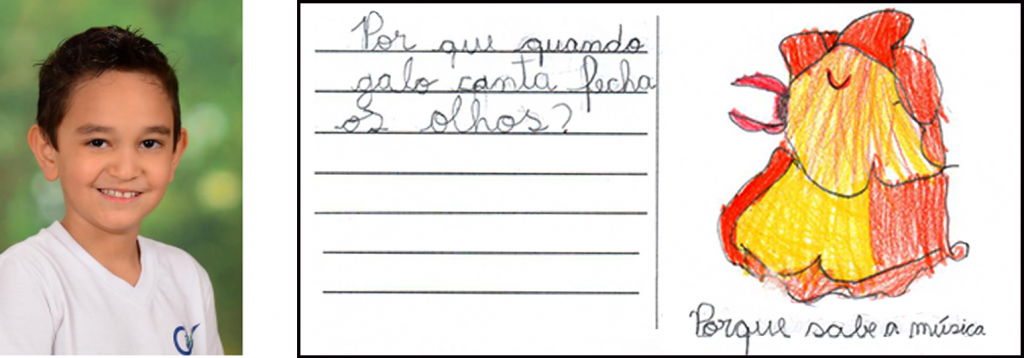 Por que quando
galo canta fecha
os olhos?
Porque sabe a música